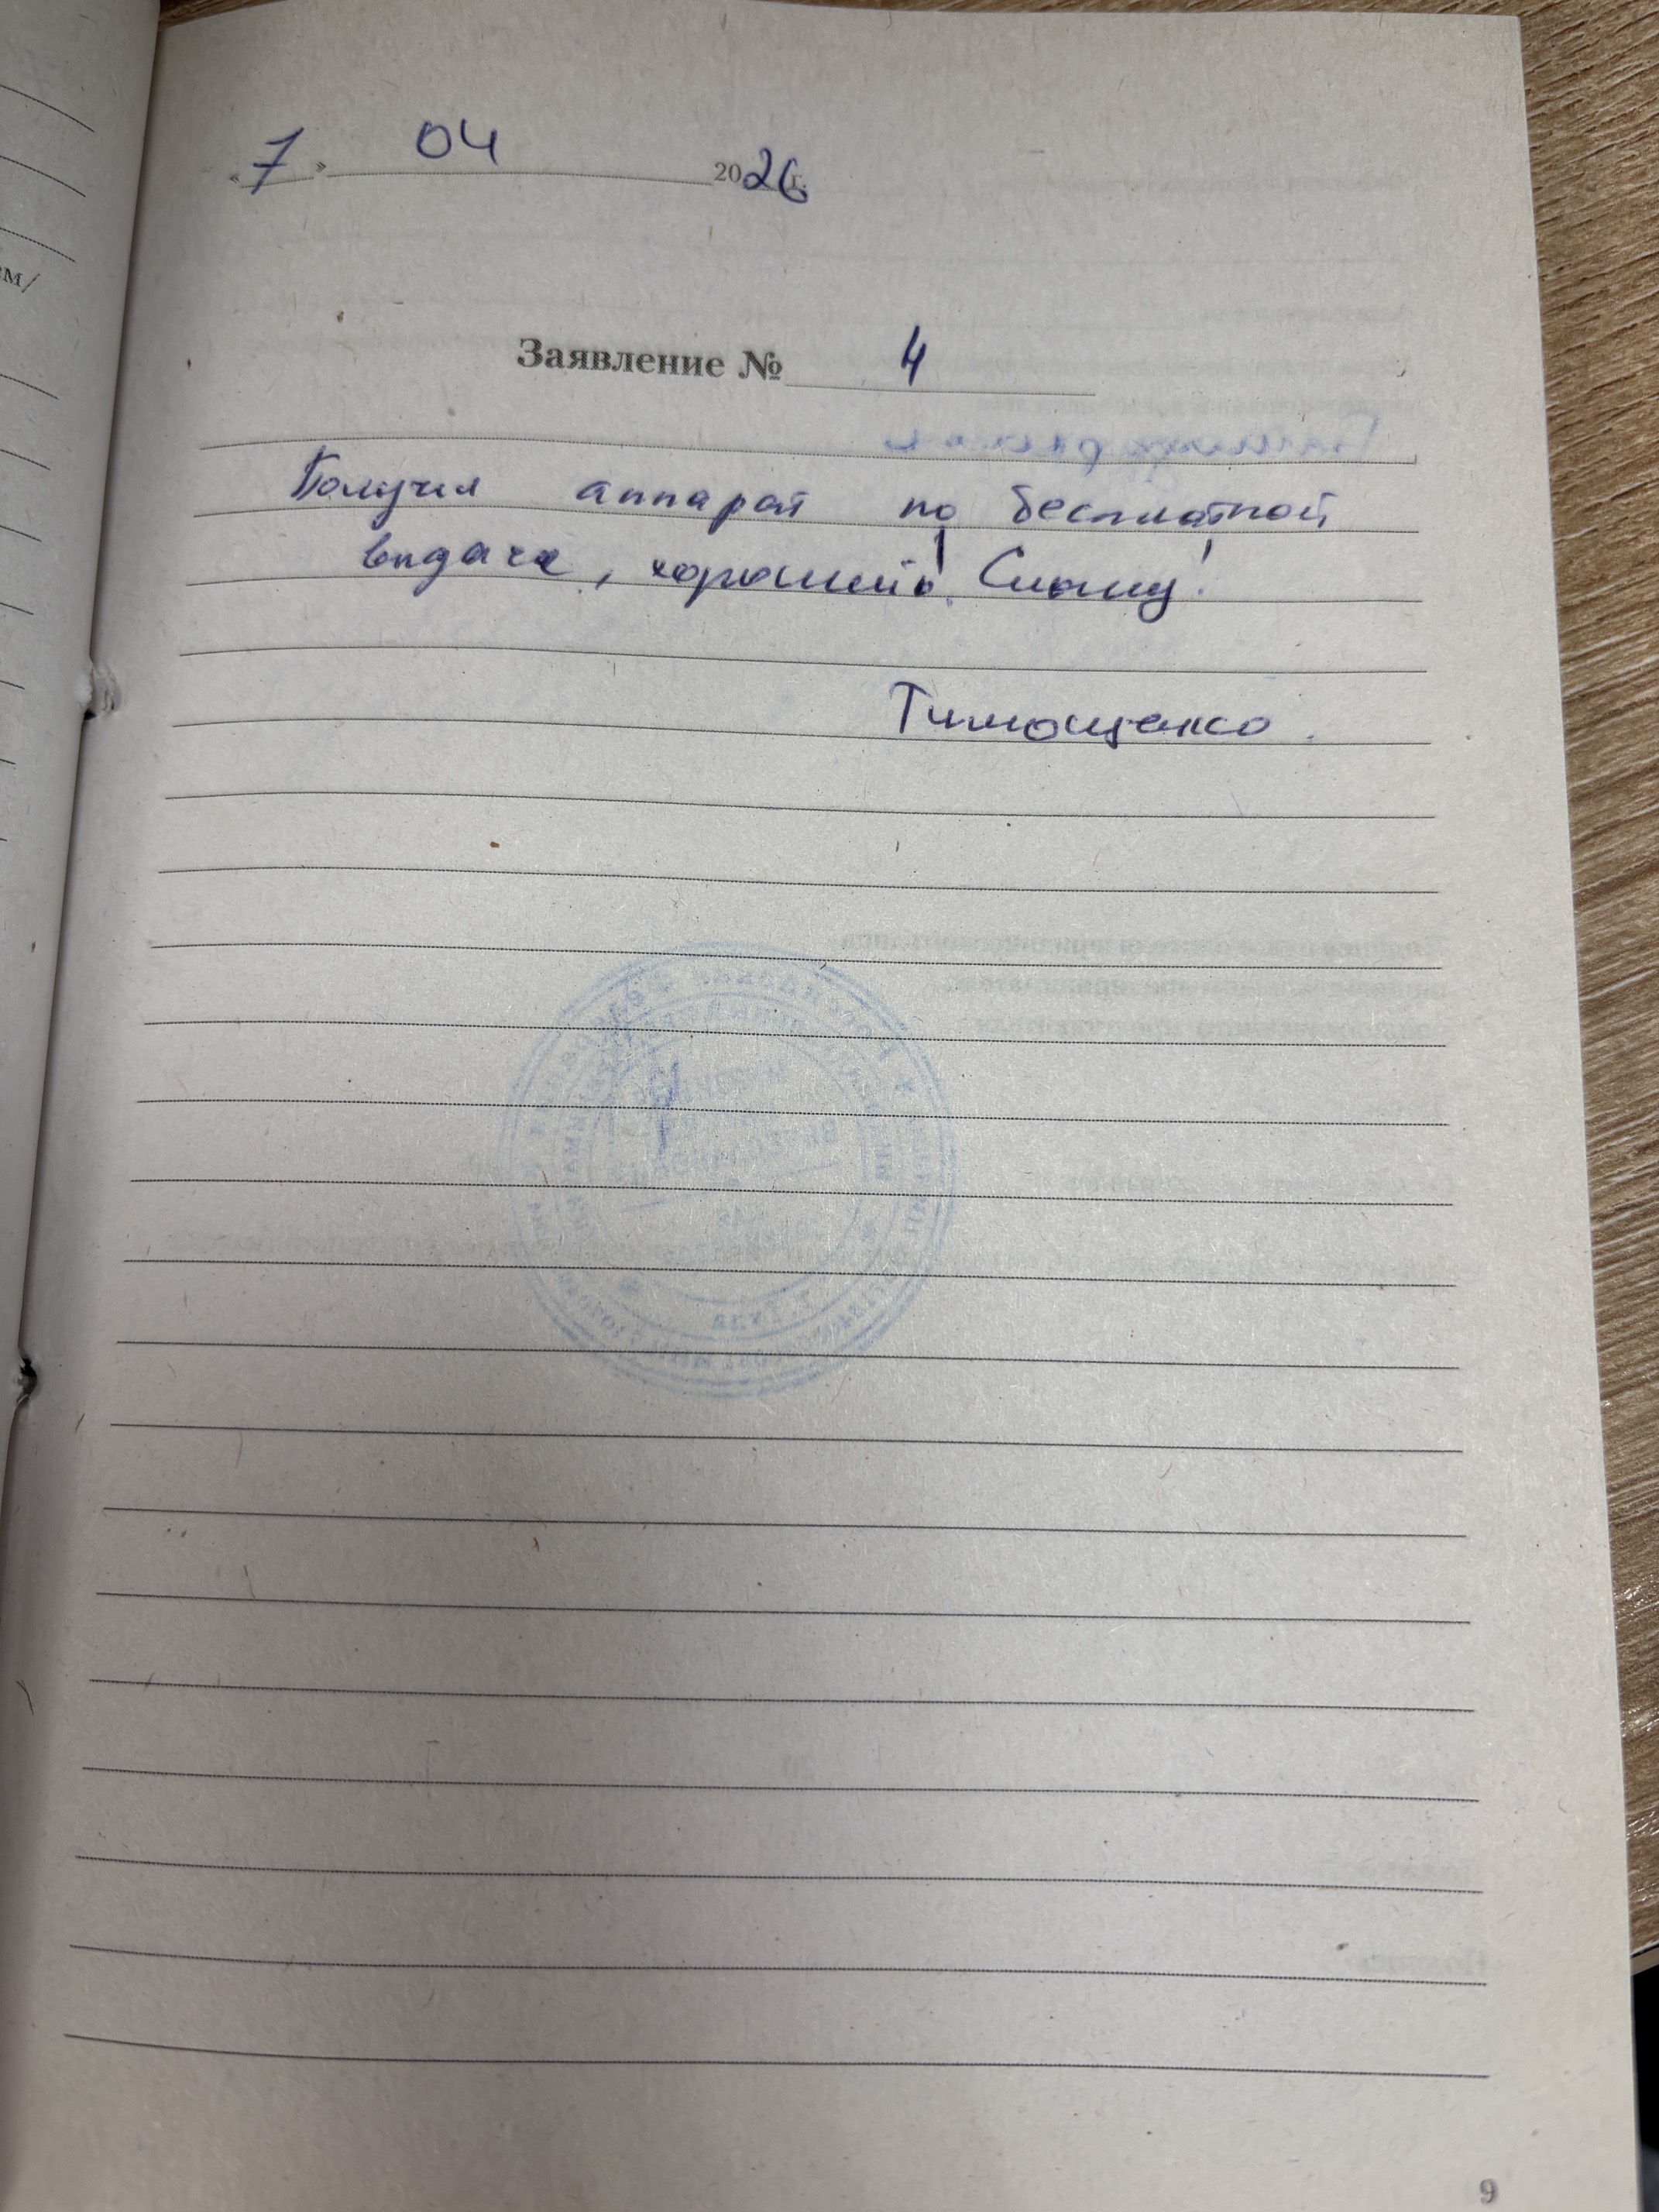 «7» 04 2026 г.
Заявление № 4
Получил аппарат по бесплатной
выдаче, хороший! Слышу!
Тимощенко.
9